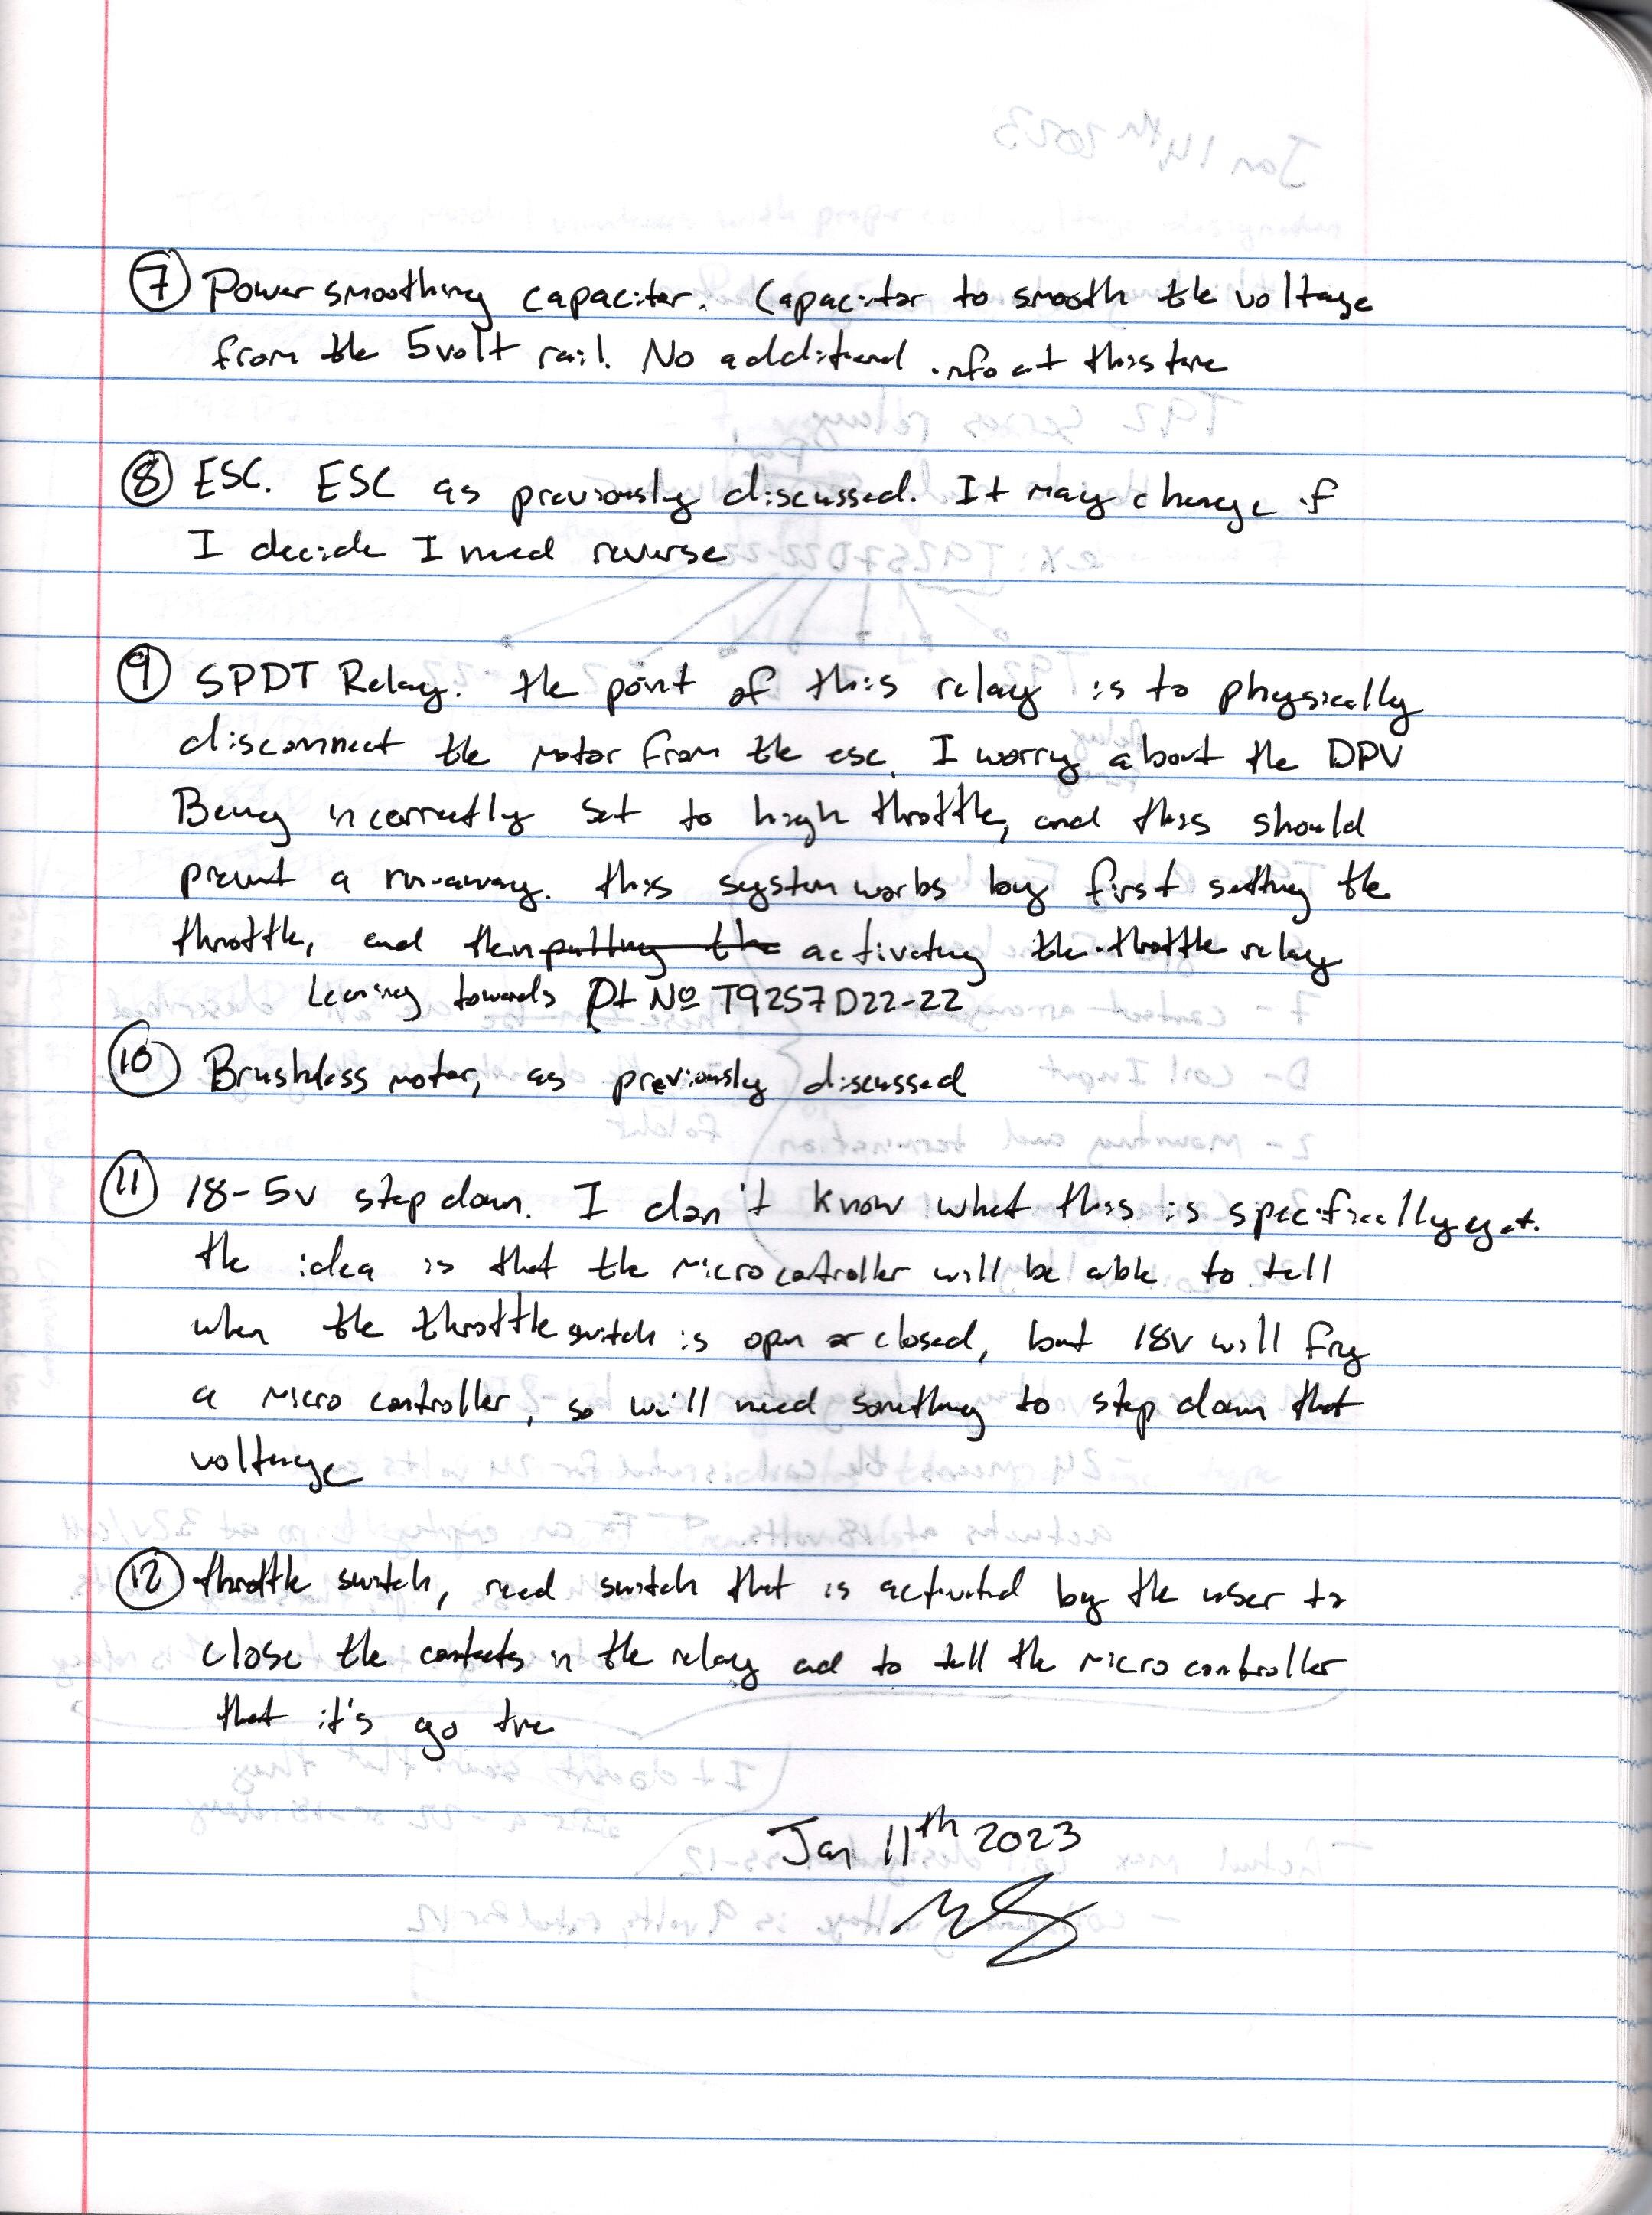 ⑦ Power smoothing capacitor. Capacitor to smooth the voltage
from the 5volt rail. No additional info at this time
⑧ ESC. ESC as previously discussed. It may change if
I decide I need reverse
⑨ SPDT Relay. the point of this relay is to physically
disconnect the motor from the esc. I worry about the DPV
Being incorrectly set to high throttle, and this should
prevent a run-away. this system works by first setting the
throttle, and then putting the activating the throttle relay
Leaning towards Pt No T92S7D22-22
⑩ Brushless motor, as previously discussed
⑪ 18-5v step down. I don't know what this is specifically yet.
the idea is that the microcontroller will be able to tell
when the throttle switch is open or closed, but 18v will fry
a micro controller, so we'll need something to step down that
voltage
⑫ throttle switch, reed switch that is activated by the user to
close the contacts in the relay and to tell the micro controller
that it's go time
Jan 11th 2023